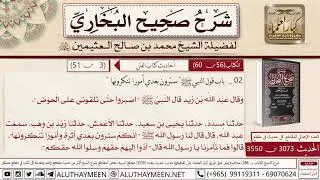 شرح صحيح البخاري
لفضيلة الشيخ محمد بن صالح العثيمين
الكتاب (56 من 60)
أحاديث كتاب الفتن
(3 من 51)
02 .. باب قول النبي ﷺ " سترون بعدي أمورا تنكرونها "
وقال عبد الله بن زيد قال النبي ﷺ - اصبروا حتى تلقوني على الحوض -
حدثنا مسدد، حدثنا يحيى بن سعيد، حدثنا الأعمش، حدثنا زيد بن وهب، سمعت
عبد الله، قال قال لنا رسول الله ﷺ - إنكم سترون بعدي أثرة وأمورا تنكرونها -
قالوا فما تأمرنا يا رسول الله قال - أدوا إليهم حقهم وسلوا الله حقكم -
الحديث 3073 من 3550
(+965) 99119311 - 69070760
ALUTHAYMEEN@HOTMAIL.COM
WWW.ALUTHAYMEEN.NET